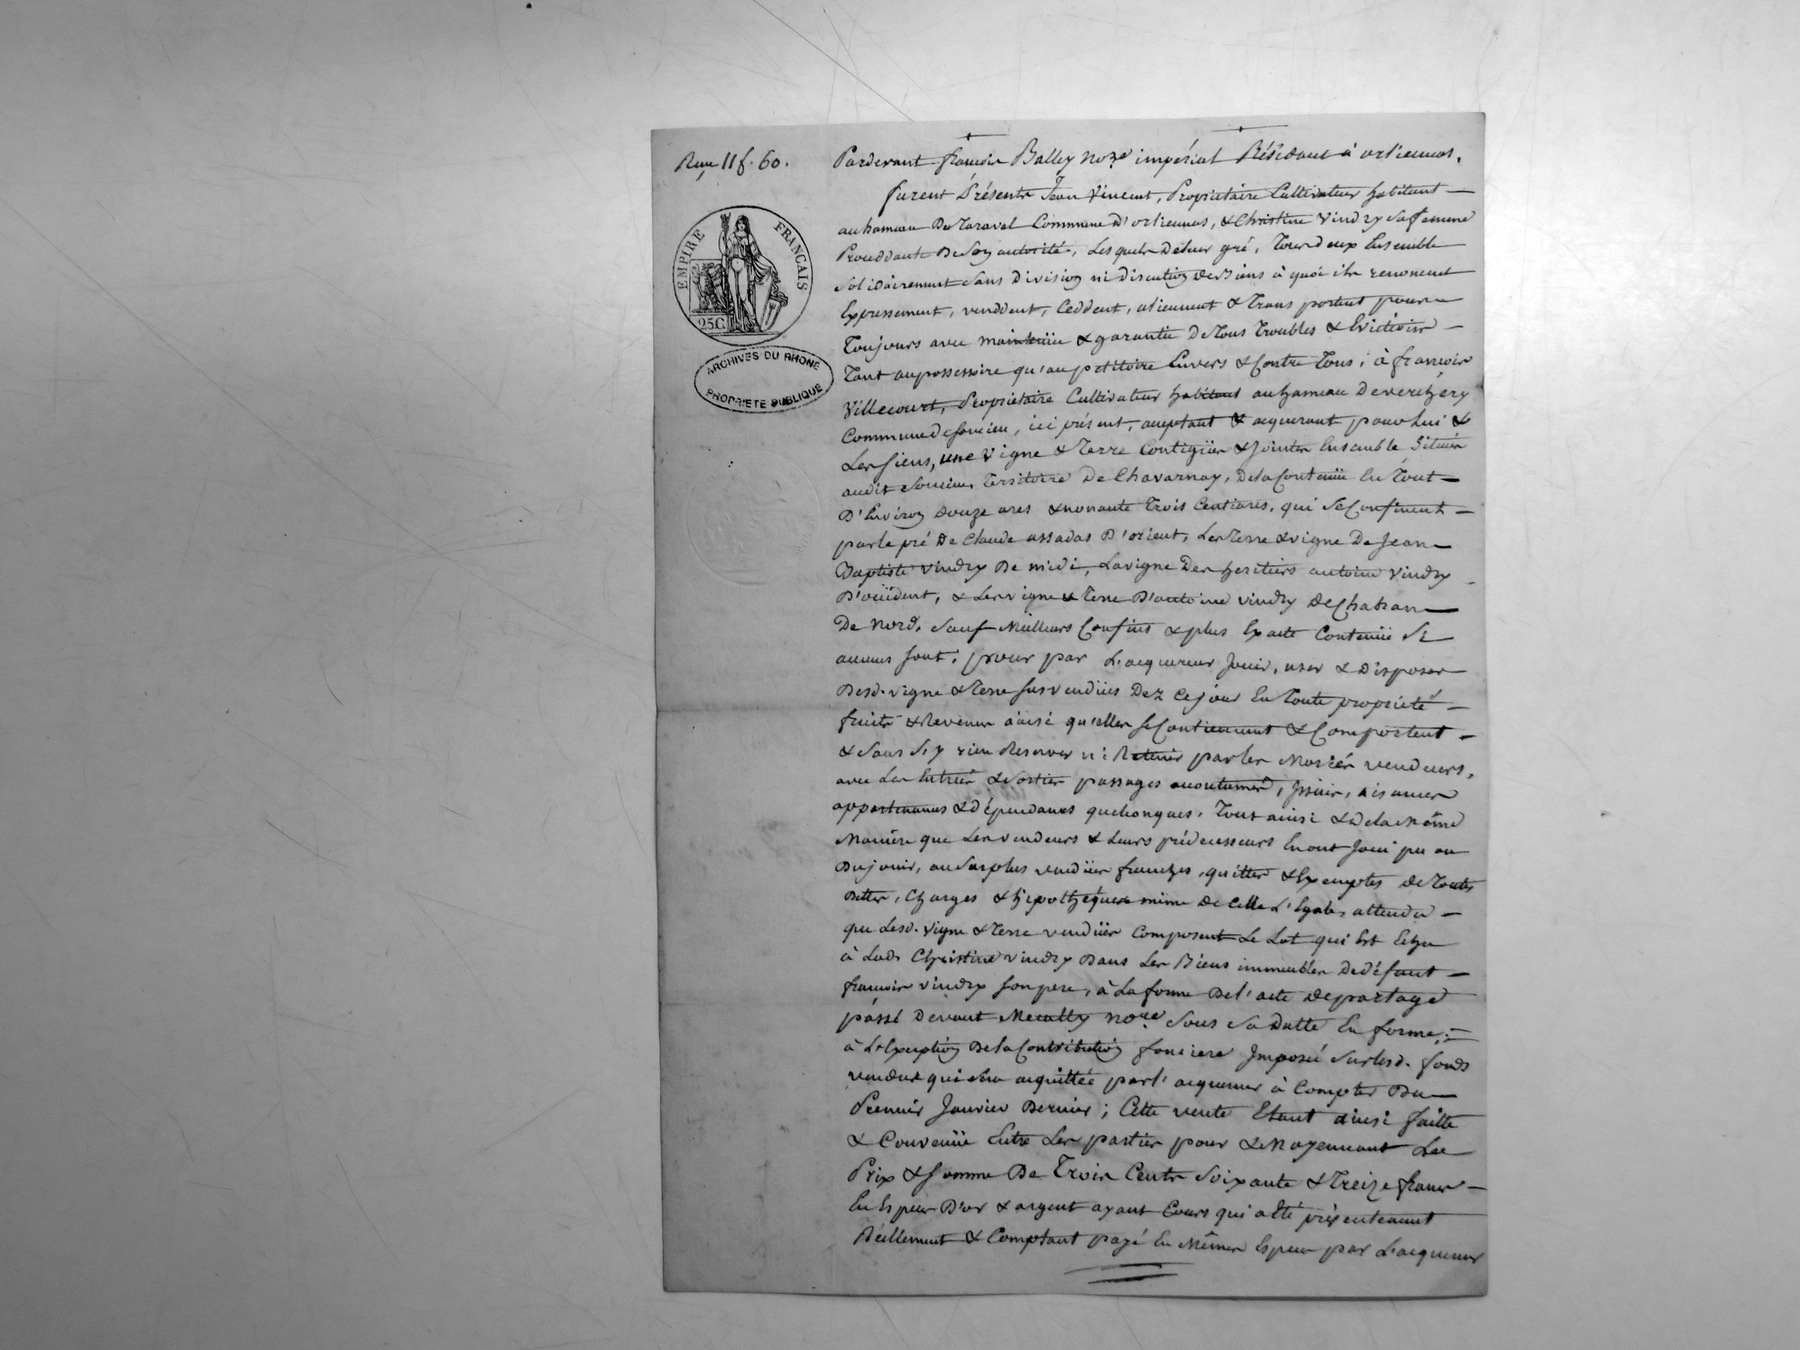 Reçu 11 f. 60.
EMPIRE FRANÇAIS
25 C
ARCHIVES DU RHONE
PROPRIETE PUBLIQUE
Pardevant françois Balley no.re impérial Résidant à orlienas.
furent Présents Jean Vincent, Propriétaire Cultivateur habitant
au hameau De Taravel Commune D'orlienas, & Christine Vindry sa femme
Procédante De Son autorité, Lesquels De Leur gré, Tous deux Ensemble
Solidairement Sans Division ni Discution De Biens à quoi ils renoncent
Expressement, venddent, Ceddent, alienent & Transportent pour
Toujours avec maintenüe & garantie De Tous Troubles & Evictions
Tant au possessoire qu'au petitoire Envers & Contre Tous ; à françois
Villecourt, Propriétaire Cultivateur habitant au hameau De verchery
Commune De Soucieu, ici présent, acceptant & acquerant pour Lui &
Les Siens, une Vigne & Terre Contigües & Jointes Ensemble Situées
audit Soucieu, Territoire De Chavarnay, De la Contenüe En Tout
D'Environ Douze ares & nonante Trois Centiares, qui Se Confinent
par le pré De Claude assadas D'orient, Les Terre & vigne De Jean
Baptiste Vindry De midi, La vigne Des heritiers antoine Vindry
D'occident, & Les vigne & Terre D'antoine vindry De Chatran
De nord, Sauf Meilleurs Confins & plus Exacte Contenüe Si
aucuns Sont ; pour par L'acquereur Jouir, user & Disposer
Desd. vigne & Terre Susvendües Dez Ce jour En Toute propriété
fruits & Revenus ainsi qu'elles Se Contiennent & Comportent
& Sans S'y rien Reserver ni Retenir par les Mariés vendeurs,
avec Les Entrées & Sorties passages accoutumés, Jssües, aisances
appartenances & Dépendances quelconques, Tout ainsi & De la Même
Manière que Les vendeurs & Leurs prédecesseurs En ont Joui pu ou
Du jouir, au Surplus vendües franches, quittes & Exemptes De Toutes
Dettes, Charges & hipothéques même De Celle L'Egale, attendu
que Lesd. Vigne & Terre vendües Composent Le Lot qui Est Echu
à Lad. Christine vindry Dans Les Biens immeubles De défunt
françois vindry Son pere, à La forme De L'acte De partage
passé Devant Me no.re Sous Sa Datte En forme ;
à L'Exception De la Contribution fonciere Jmposée Sur lesd. fonds
vendus qui Sera acquittée par L'acquereur à Compter Du
Premier Janvier Dernier ; Cette vente Etant ainsi faitte
& Convenüe Entre Les parties pour & Moyennant Le
Prix & Somme De Trois Cents Soixante & Treize francs
En Especes D'or & argent ayant Cours qui a été présentement
Réellement & Comptant payé En Mêmes Especes par L'acquereur